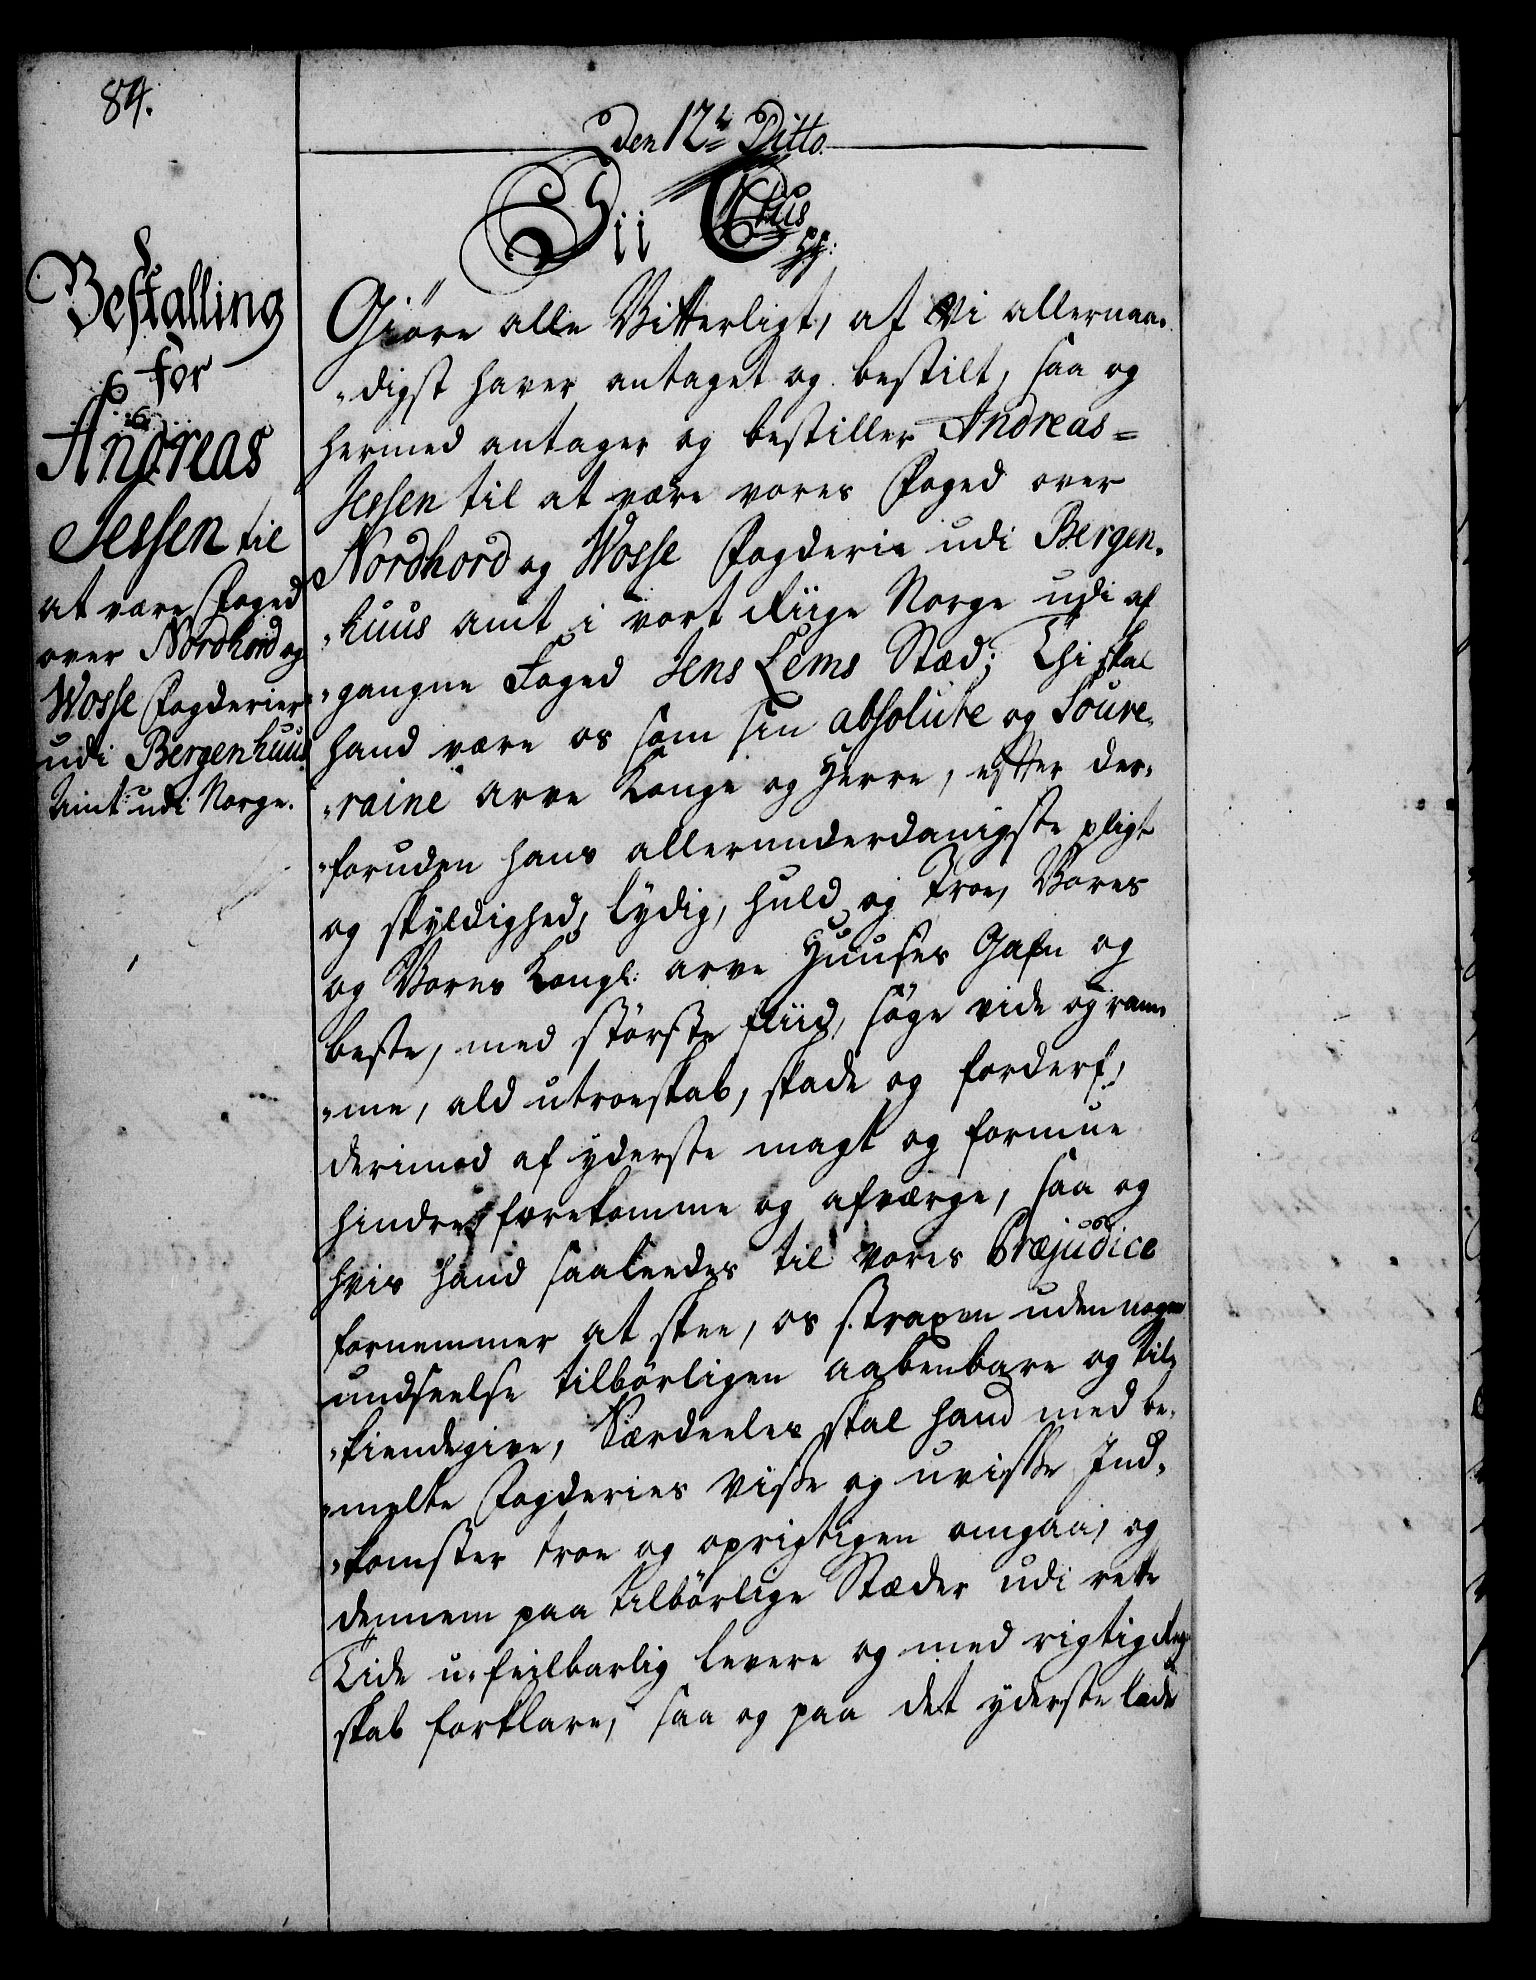 84.
Den 12te Ditto.
Bestalling
for
Andreas
Jessen til
at være Foged
over Nordhord og
Wosse Fogderier
udi Bergenhuus
Amt udi Norge.
Vii C 6tus pp:
Giöre alle Vitterligt, at Vi allernaa-
-digst haver antaget og bestilt, saa og
hermed antager og bestiller Andreas=
Jessen til at være vores Foged over
Nordhord og Wosse Fogderie udi Bergen-
-huus amt i vort Riige Norge udi af
-gangne Foged Jens Lems Stæd; Thi skal
hand være os som sin absolute og Souve-
-raine arve Konge og Herre, efter der-
-foruden hans allerunderdanigste pligt
og skyldighed, lydig, huld og Troe, Vores
og Vores Kongl: arve Huuses Gafn og
beste, med störste fliid, söge vide og ram-
-me, ald utroeskab, skade og forderf,
derimod af yderste magt og formue
hindre forekomme og afværge, saa og
hvis hand saaleedes til vores Præjudice
fornemmer at skee, os straxen uden nogen
undseelse tilbörligen aabenbare og til-
-kiendegive, Særdeeles skal hand med be-
-melte Fogderies Visse og uvisse Ind-
-komster troe og oprigtigen omgaa, og
dennem paa tilbörlige Stæder udi rette
Tide u-feilbarlig levere og med rigtig Reg-
skab forklare, saa og paa det yderste lade